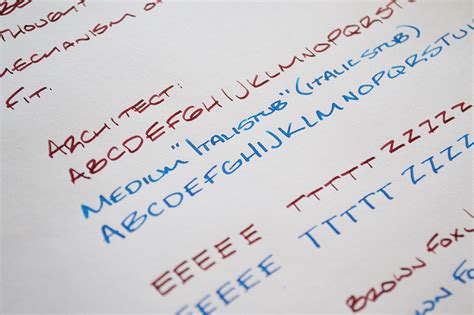 THOUGHT
MECHANISM OF
FIT.
ARCHITECT:
ABCDEFGHIJKLMNOPQRSTU
MEDIUM "ITALISTUB" (ITALIC STUB)
ABCDEFGHIJKLMNOPQRSTUV
EEEEE TTTTT ZZZZZ
EEEEE TTTTT ZZZZ
BROWN FOX
BROWN FOX